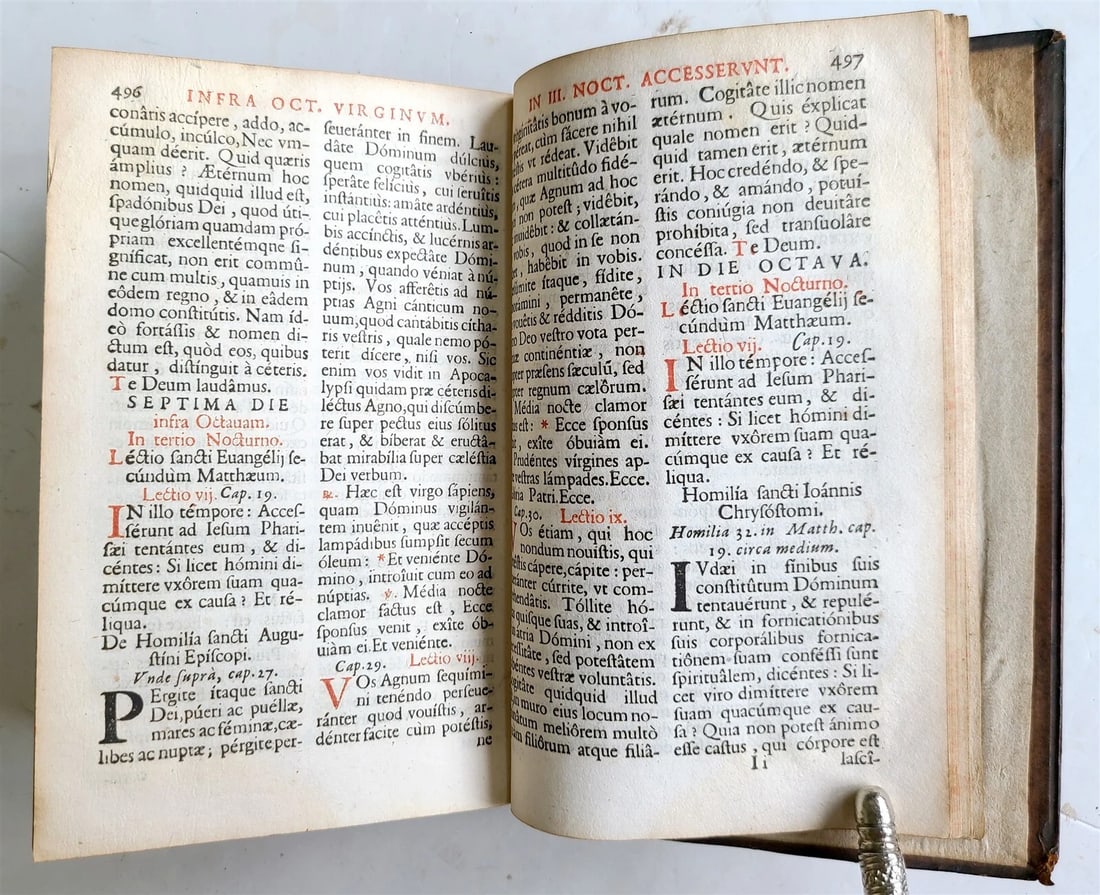 496
INFRA OCT. VIRGINVM.
conâtis accípere, addo, ac-
cúmulo, incúlco, Nec vm-
quam déerit. Quid quæris
ámplius? Ætérnum hoc
nomen, quidquid illud est,
spadónibus Dei, quod úti-
que glóriam quamdam pró-
priam excellentémque si-
gníficat, non erit commû-
ne cum multis, quamuis in
eôdem regno, & in eâdem
domo constitútis. Nam íd-
eò fortássis & nomen di-
ctum est, quòd eos, quibus
datur, distínguit à céteris.
Te Deum laudâmus.
SEPTIMA DIE
infra Octauam.
In tertio Nocturno.
Léctio sancti Euangélij se-
cúndùm Matthæum.
Lectio vij. Cap. 19.
IN illo témpore: Acces-
sérunt ad Iesum Phari-
sæi tentántes eum, & di-
céntes: Si licet hómini di-
míttere vxôrem suam qua-
cúmque ex causa? Et ré-
liqua.
De Homilía sancti Augu-
stíni Epíscopi.
Vnde suprà, cap. 27.
PErgite ítaque sancti
Dei, púeri ac puéllæ,
mares ac féminæ, cæ-
libes ac nuptæ; pérgite per-
seueránter in finem. Lau-
dâte Dóminum dúlciùs,
quem cogitâtis vbériùs:
sperâte felíciùs, cui seruîtis
instántiùs: amâte ardéntiùs,
cui placêtis atténtiùs. Lum-
bis accínctis, & lucérnis ar-
déntibus expectâte Dómi-
num, quando véniat à nú-
ptijs. Vos afferêtis ad nú-
ptias Agni cánticum no-
uum, quod cantábitis cítha-
ris vestris, quale nemo pó-
terit dícere, nisi vos. Sic
enim vos vidit in Apoca-
lypsi quidam præ céteris di-
léctus Agno, qui discúmbe-
re super pectus eius sólitus
erat, & bibêbat & eructâ-
bat mirabília super cæléstia
Dei verbum.
℟. Hæc est virgo sápiens,
quam Dóminus vigilán-
tem inuênit, quæ accéptis
lampádibus sumpsit secum
óleum: * Et veniénte Dó-
mino, introîuit cum eo ad
núptias. ℣. Média nocte
clamor factus est, Ecce
sponsus venit, exîte ób-
uiàm ei. Et veniénte.
Cap. 29. Lectio viij.
VOs Agnum sequími-
ni tenéndo perseue-
ránter quod vouístis, ar-
dénter fácite cum potéstis,
ne
IN III. NOCT. ACCESSERVNT. 497
virginitâtis bonum à vo-
péreat, cùm fácere nihil
vt rédeat. Vidêbit
cétera multitûdo fidé-
quæ Agnum ad hoc
non potest; vidêbit,
inuidêbit: & collætán-
vobis, quod in se non
habêbit in vobis.
ítaque, fídite,
permanête,
vouête & rédditis Dó-
Deo vestro vota per-
continéntiæ, non
præsens sæculũ, sed
regnum cælôrum.
Média nocte clamor
est: * Ecce sponsus
exîte óbuiàm ei.
Prudéntes vírgines ap-
vestras lámpades. Ecce.
Patri. Ecce.
Cap. 30. Lectio ix.
VOs étiam, qui hoc
nondum nouístis, qui
cápere, cápite: per-
cúrrite, vt com-
Tóllite hó-
quisque suas, & introî-
atria Dómini, non ex
sed potestâtem
vestræ voluntâtis.
quidquid illud
muro eius locum no-
meliórem multò
filiôrum atque filiâ-
rum. Cogitâte illìc nomen
ætérnum. Quis éxplicat
quale nomen erit? Quid-
quid tamen erit, ætérnum
erit. Hoc credéndo, & spe-
rándo, & amándo, potuí-
stis coniúgia non deuitâre
prohíbita, sed transuolâre
concéssa. Te Deum.
IN DIE OCTAVA.
In tertio Nocturno.
Léctio sancti Euangélij se-
cúndùm Matthæum.
Lectio vij. Cap. 19.
IN illo témpore: Acces-
sérunt ad Iesum Phari-
sæi tentántes eum, & di-
céntes: Si licet hómini di-
míttere vxôrem suam qua-
cúmque ex causa? Et ré-
liqua.
Homilía sancti Ioánnis
Chrysóstomi.
Homilia 32. in Matth. cap.
19. circa medium.
IVdæi in fínibus suis
constitútum Dóminum
tentauérunt, & repulé-
runt, & in fornicatiónibus
suis corporálibus fornica-
tiônem suam conféssi sunt
spirituâlem, dicéntes: Si li-
cet viro dimíttere vxôrem
suam quacúmque ex cau-
sa? Quia non potest ánimo
esse castus, qui córpore est
Ii
lascî-